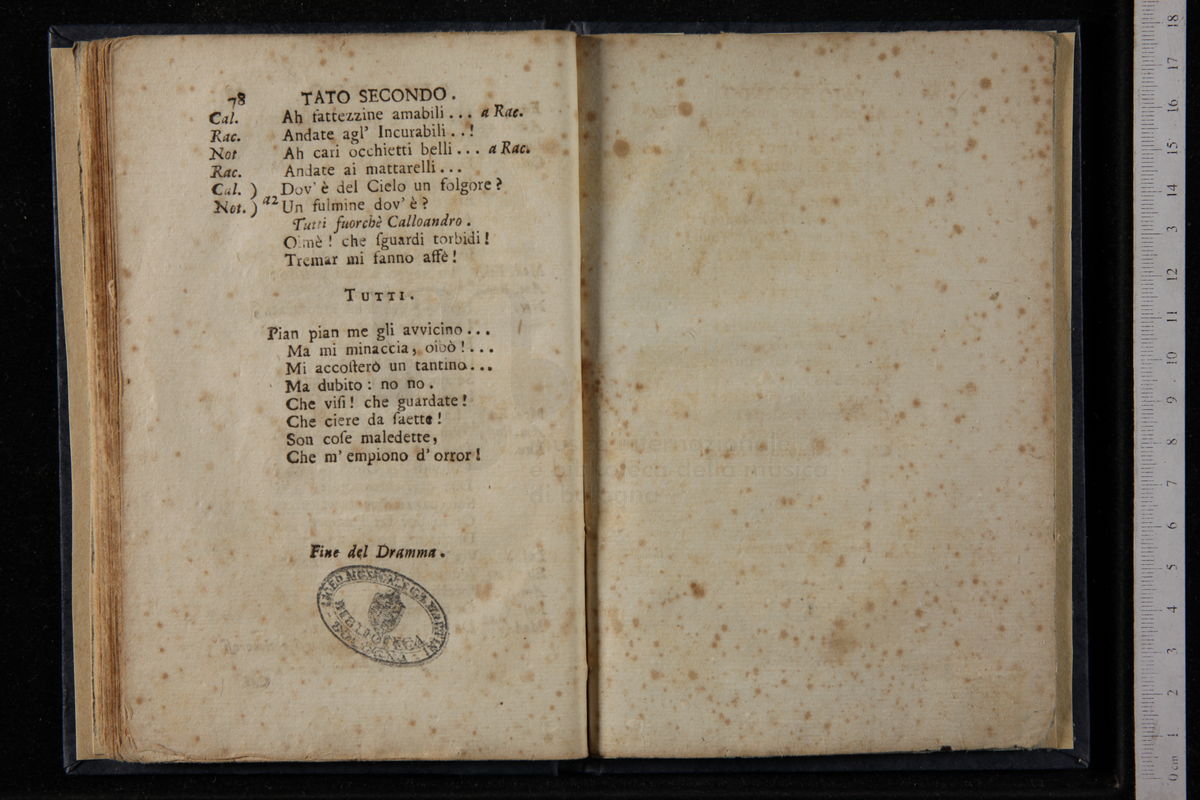 78 TATO SECONDO.
Cal. Ah fattezzine amabili... a Rac.
Rac. Andate agl' Incurabili..!
Not Ah cari occhietti belli... a Rac.
Rac. Andate ai mattarelli...
Cal. ) Dov' è del Cielo un folgore?
Not. ) a2 Un fulmine dov' è?
Tutti fuorchè Calloandro.
Oimè! che ſguardi torbidi!
Tremar mi fanno affè!
TUTTI.
Pian pian me gli avvicino...
Ma mi minaccia, oibò!...
Mi accoſterò un tantino...
Ma dubito: no no.
Che viſi! che guardate!
Che ciere da ſaette!
Son coſe maledette,
Che m' empiono d' orror!
Fine del Dramma.
BIBLIOTECA
BOLOGNA
museo internazionale
e biblioteca della musica
di bologna
18
17
16
15
14
13
12
11
10
9
8
7
6
5
4
3
2
1
0 cm